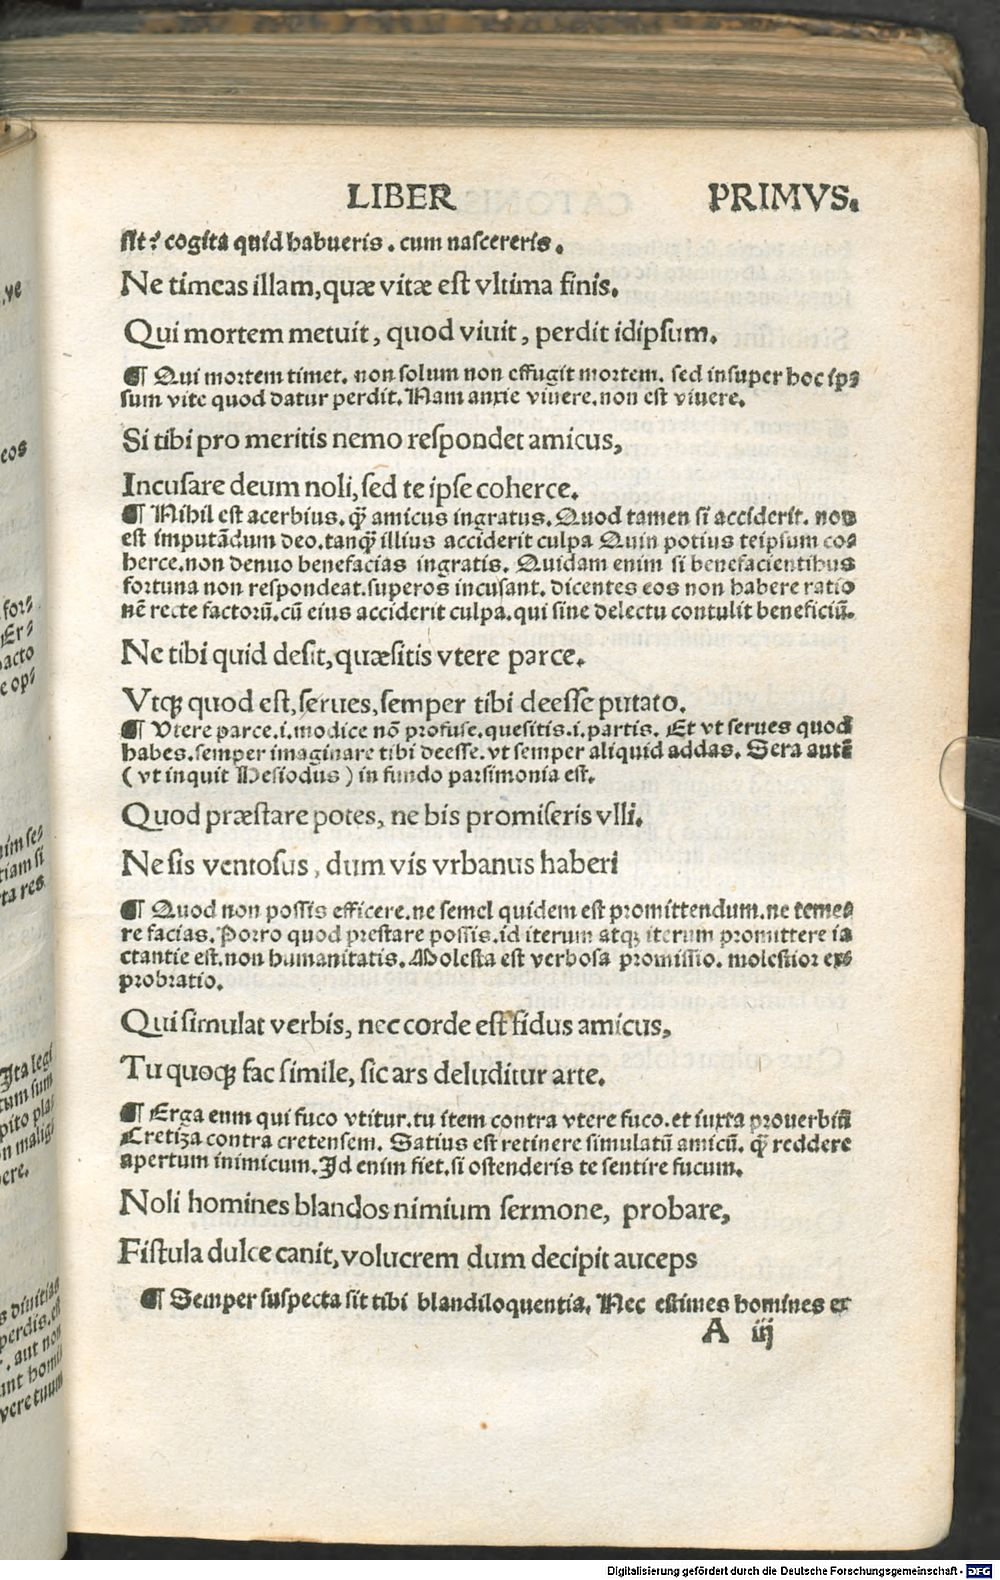 LIBER PRIMVS.
sit? cogita quid habueris. cum nascereris.
Ne timeas illam, quæ vitæ est vltima finis.
Qui mortem metuit, quod viuit, perdit idipsum.
¶ Qui mortem timet. non solum non effugit mortem. sed insuper hoc ip⸗
sum vite quod datur perdit. Nam anxie viuere. non est viuere.
Si tibi pro meritis nemo respondet amicus,
Incusare deum noli, sed te ipse coherce.
¶ Nihil est acerbius. q̄ amicus ingratus. Quod tamen si acciderit. non
est imputādum deo. tanq̄ illius acciderit culpa Quin potius teipsum co⸗
herce. non denuo benefacias ingratis. Quidam enim si benefacientibus
fortuna non respondeat. superos incusant. dicentes eos non habere ratio
nē recte factorū. cū eius acciderit culpa. qui sine delectu contulit beneficiū.
Ne tibi quid desit, quæsitis vtere parce.
Vtqꝫ quod est, serues, semper tibi deesse putato.
¶ Vtere parce. i. modice nō profuse. quesitis. i. partis. Et vt serues quod
habes. semper imaginare tibi deesse. vt semper aliquid addas. Sera autē
( vt inquit Hesiodus ) in fundo parsimonia est.
Quod præstare potes, ne bis promiseris vlli.
Ne sis ventosus, dum vis vrbanus haberi
¶ Quod non possis efficere. ne semel quidem est promittendum. ne teme⸗
re facias. Porro quod prestare possis. id iterum atqꝫ iterum promittere ia
ctantie est. non humanitatis. Molesta est verbosa promissio. molestior ex⸗
probratio.
Qui simulat verbis, nec corde est fidus amicus,
Tu quoqꝫ fac simile, sic ars deluditur arte.
¶ Erga eum qui fuco vtitur. tu item contra vtere fuco. et iuxta prouerbiū
Cretiza contra cretensem. Satius est retinere simulatū amicū. q̄ reddere
apertum inimicum. Id enim fiet, si ostenderis te sentire fucum.
Noli homines blandos nimium sermone, probare,
Fistula dulce canit, volucrem dum decipit auceps
¶ Semper suspecta sit tibi blandiloquentia. Nec estimes homines ex
A iij
ve
eos
fors⸗
Er⸗
pacto
e op⸗
nim se⸗
tiam si
ta res
Ita legi
tum sum
pito pla⸗
n malig
ere.
s diuitias
perdis. est
. aut non
unt homi
vere tuum
Digitalisierung gefördert durch die Deutsche Forschungsgemeinschaft - DFG